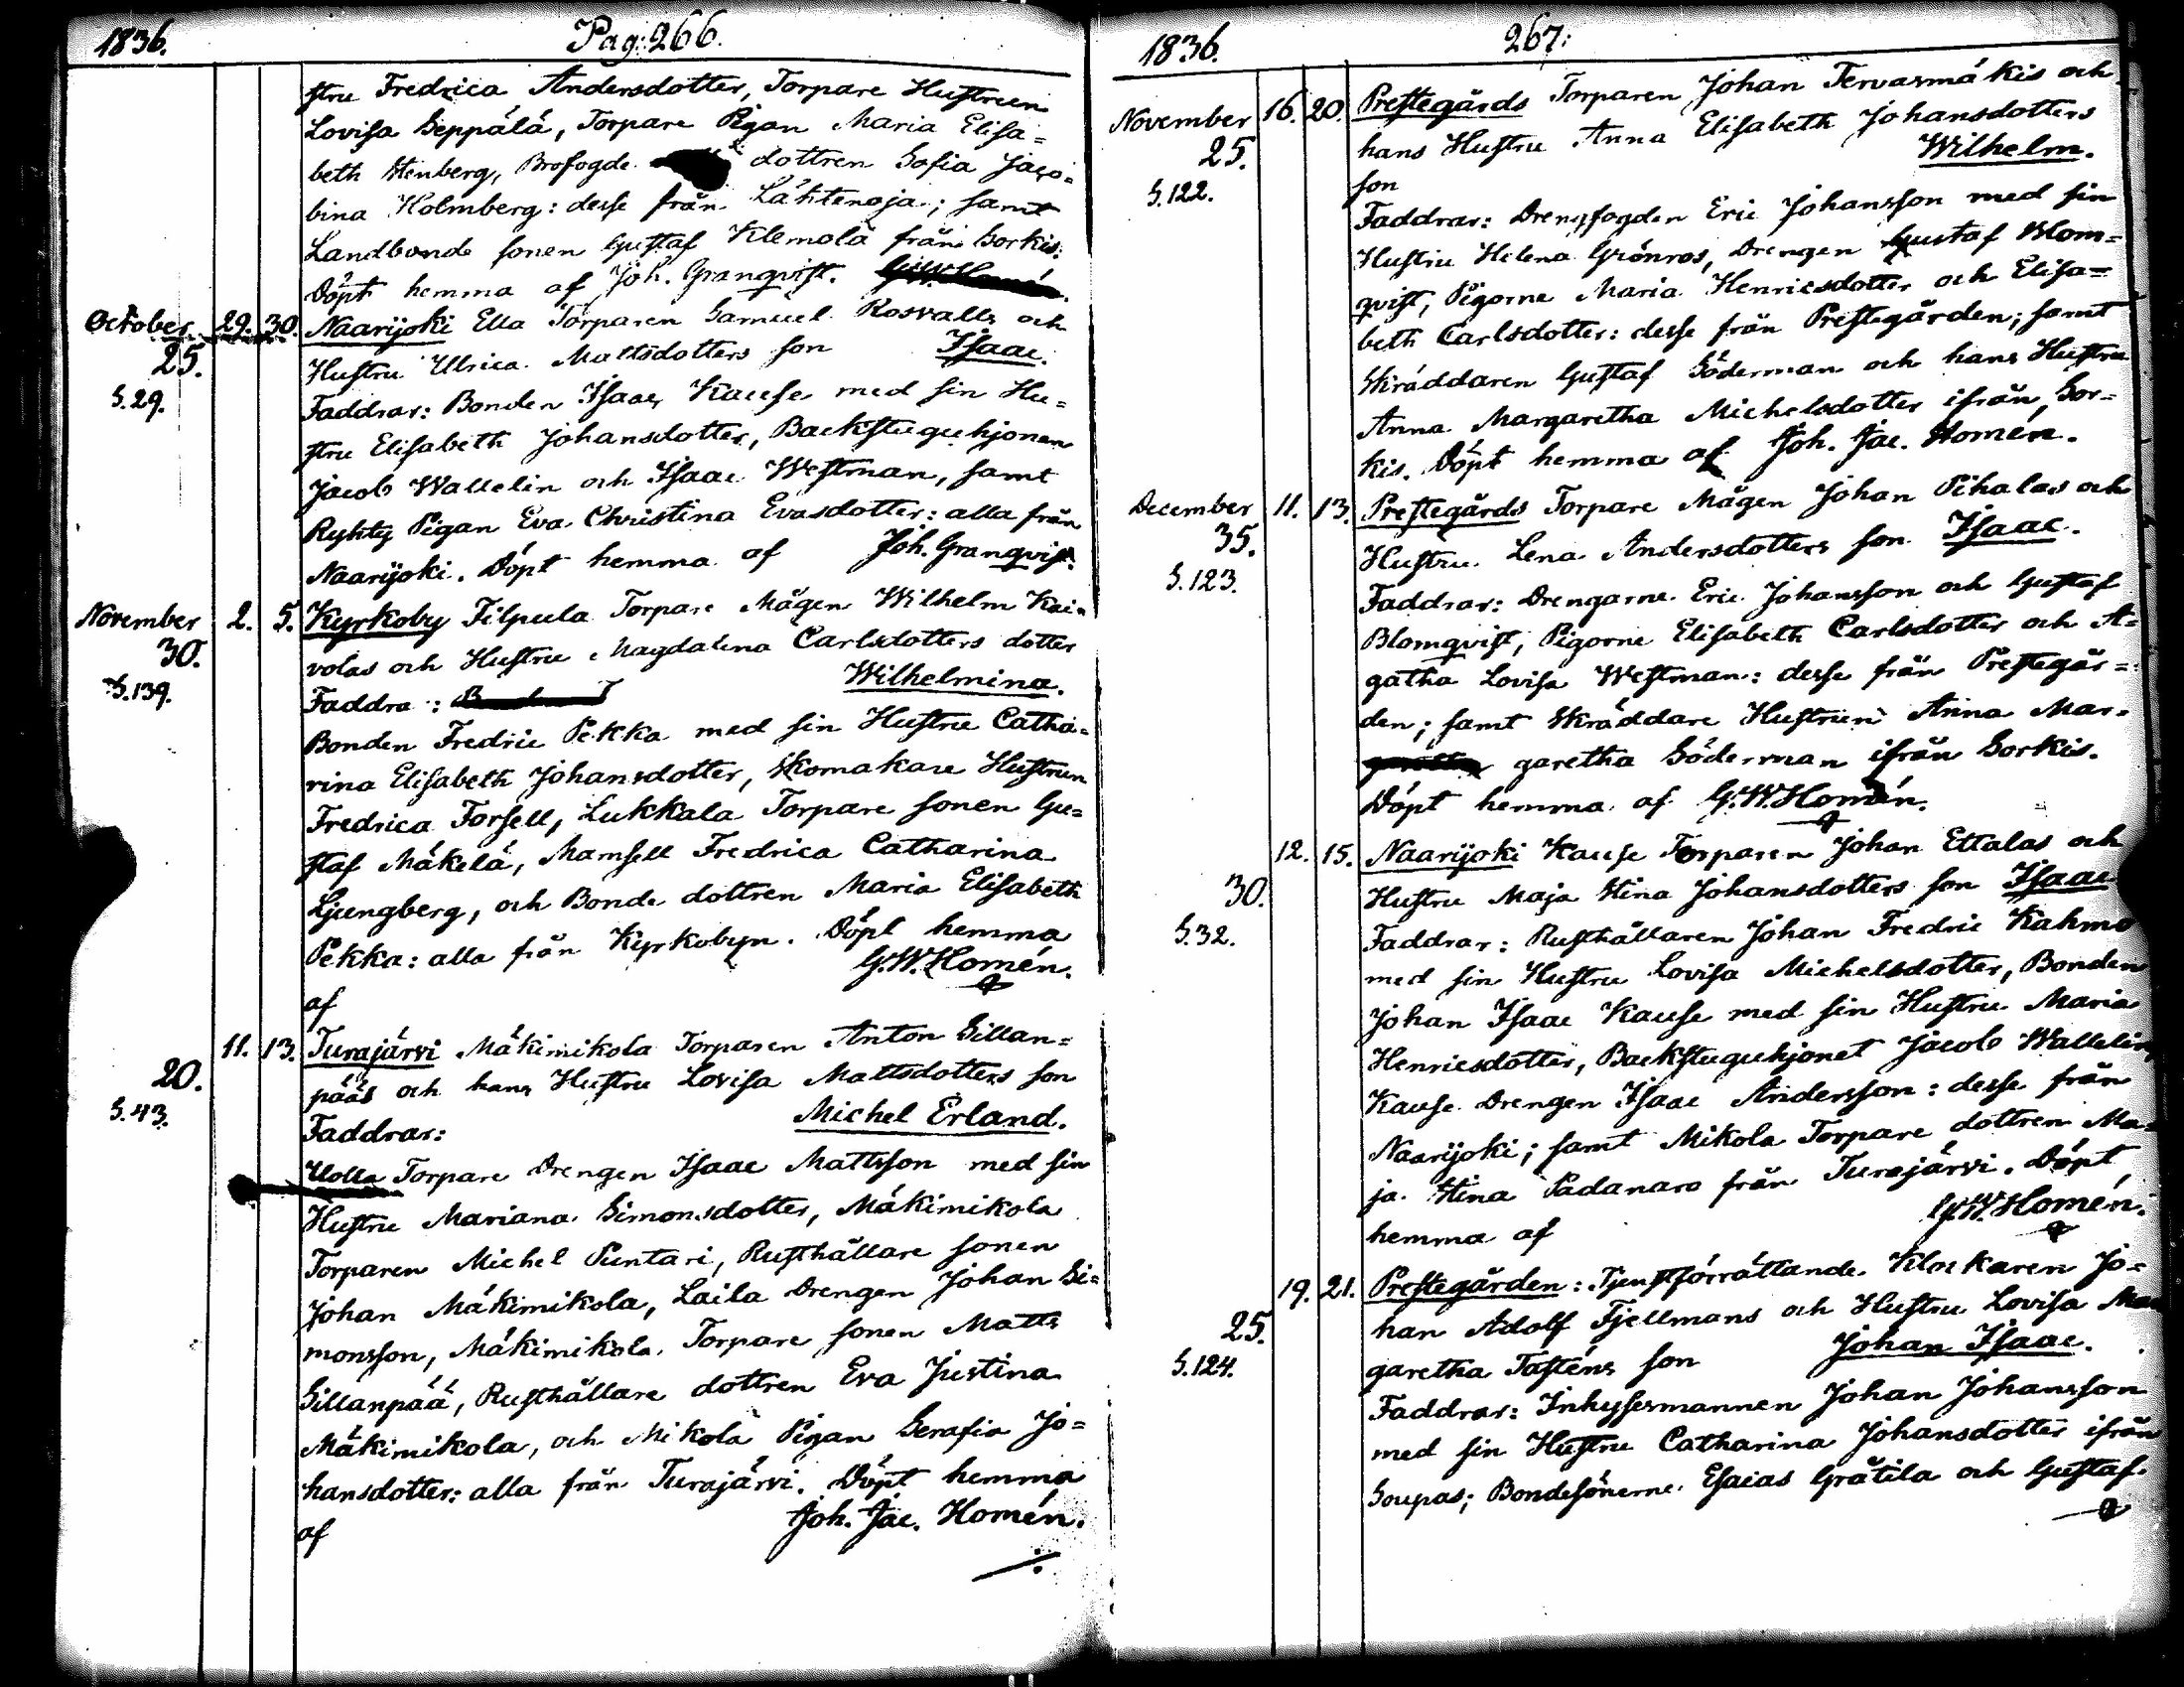 1836. Pag: 266.
stru Fredrica Andersdotter, Torpare Hustrun
Lovisa Seppälä, Torpare Pigan Maria Elisa=
beth Stenberg, Brofogde dottren Sofia Jaco=
bina Holmberg: desse från Lähtenoja; samt
Landbonde sonen Gustaf Klemola från Sorkis:
Döpt hemma af Joh. Granqvist.
October 29. 30. Naarijoki Ella Torparen Samuel Rosvalls och
25. Hustru Ulrica Mattsdotters son Isaac.
S. 29. Faddrar: Bonden Isaac Kause med sin Hu=
stru Elisabeth Johansdotter, Backstuguhjonen
Jacob Wallelin och Isaac Westman, samt
Ryhty Pigan Eva Christina Evasdotter: alla från
Naarijoki. Döpt hemma af Joh. Granqvist.
November 2. 5. Kyrkoby Filpula Torpare Mågen Wilhelm Kai=
30. volas och Hustru Magdalena Carlsdotters dotter
S. 139. Wilhelmina.
Faddra:
Bonden Fredric Pekka med sin Hustru Catha=
rina Elisabeth Johansdotter, Skomakare Hustrun
Fredrica Forsell, Lukkala Torpare sonen Gu=
staf Mäkelä, Mamsell Fredrica Catharina
Ljungberg, och Bonde dottren Maria Elisabeth
Pekka: alla från Kyrkobyn. Döpt hemma
af G. W. Homén.
11. 13. Turajärvi Mäkimikola Torparen Anton Sillan=
20. pääs och hans Hustru Lovisa Mattsdotters son
S. 43. Michel Erland.
Faddrar:
Uolla Torpare Drengen Isaac Mattsson med sin
Hustru Mariana Simonsdotter, Mäkimikola
Torparen Michel Puntari, Rusthållare sonen
Johan Mäkimikola, Laila Drengen Johan Si=
monsson, Mäkimikola Torpare sonen Matts
Sillanpää, Rusthållare dottren Eva Justina
Mäkimikola, och Mikola Pigan Serafia Jo=
hansdotter: alla från Turajärvi. Döpt hemma
af Joh. Jac. Homén.
1836. 267:
November 16. 20. Prestegårds Torparen Johan Tervasmäkis och
25. hans Hustru Anna Elisabeth Johansdotters
S. 122. son Wilhelm.
Faddrar: Drengfogden Eric Johansson med sin
Hustru Helena Grönros, Drengen Gustaf Blom=
qvist, Pigorne Maria Henricsdotter och Elisa=
beth Carlsdotter: desse från Prestegården; samt
Skräddaren Gustaf Söderman och hans Hustru
Anna Margaretha Michelsdotter ifrån Sor=
kis. Döpt hemma af Joh. Jac. Homén.
December 11. 13. Prestegårds Torpare Mågen Johan Pihalas och
35. Hustru Lena Andersdotters son Isaac.
S. 123. Faddrar: Drengarne Eric Johansson och Gustaf
Blomqvist, Pigorne Elisabeth Carlsdotter och A=
gatha Lovisa Westman: desse från Prestegår=
den; samt Skräddare Hustrun Anna Mar=
garetha Söderman ifrån Sorkis.
Döpt hemma af G. W. Homén.
12. 15. Naarijoki Kause Torparen Johan Ettalas och
30. Hustru Maja Stina Johansdotters son Isaac
S. 32. Faddrar: Rusthållaren Johan Fredric Kahma
med sin Hustru Lovisa Michelsdotter, Bonden
Johan Isaac Kause med sin Hustru Maria
Henricsdotter, Backstuguhjonet Jacob Wallelin,
Kause Drengen Isaac Andersson: desse från
Naarijoki; samt Mikola Torpare dottren Ma=
ja Stina Padanara från Turajärvi. Döpt
hemma af G. W. Homén.
19. 21. Prestegården: Tjenstförrättande Klockaren Jo=
25. han Adolf Fjellmans och Hustru Lovisa Mar
S. 124. garetha Tasténs son Johan Isaac.
Faddrar: Inhysesmannen Johan Johansson
med sin Hustru Catharina Johansdotter ifrån
Soupas; Bondesönerne Esaias Gråtila och Gustaf